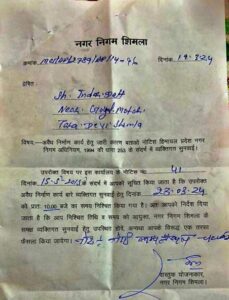 नगर निगम शिमला
क्रमांक
दिनांक 19.3.24
प्रेषित :
Sh. Inder Dutt
Near
Tara Devi Shimla
विषय:- अवैध निर्माण कार्य हेतु जारी कारण बताओ नोटिस हिमाचल प्रदेश नगर
निगम अधिनियम, 1994 की धारा 253 के संदर्भ में व्यक्तिगत सुनवाई।
उपरोक्त विषय पर इस कार्यालय के नोटिस नo 41
दिनांक के संदर्भ में आपको सूचित किया जाता है कि उपरोक्त
अवैध निर्माण कार्य बारे व्यक्तिगत सुनवाई हेतु दिनांक 23.03.24
को प्रात: 10.00 बजे का समय निश्चित किया गया है। अत: आपको निर्देश दिया
जाता है कि आप निश्चित तिथि व समय को आयुक्त, नगर निगम शिमला के
समक्ष व्यक्तिगत सुनवाई हेतु उपस्थित होवें, अन्यथा आपके विरूद्ध एक तरफा
फैसला किया जायेगा।
वास्तुक योजनाकार,
नगर निगम, शिमला।